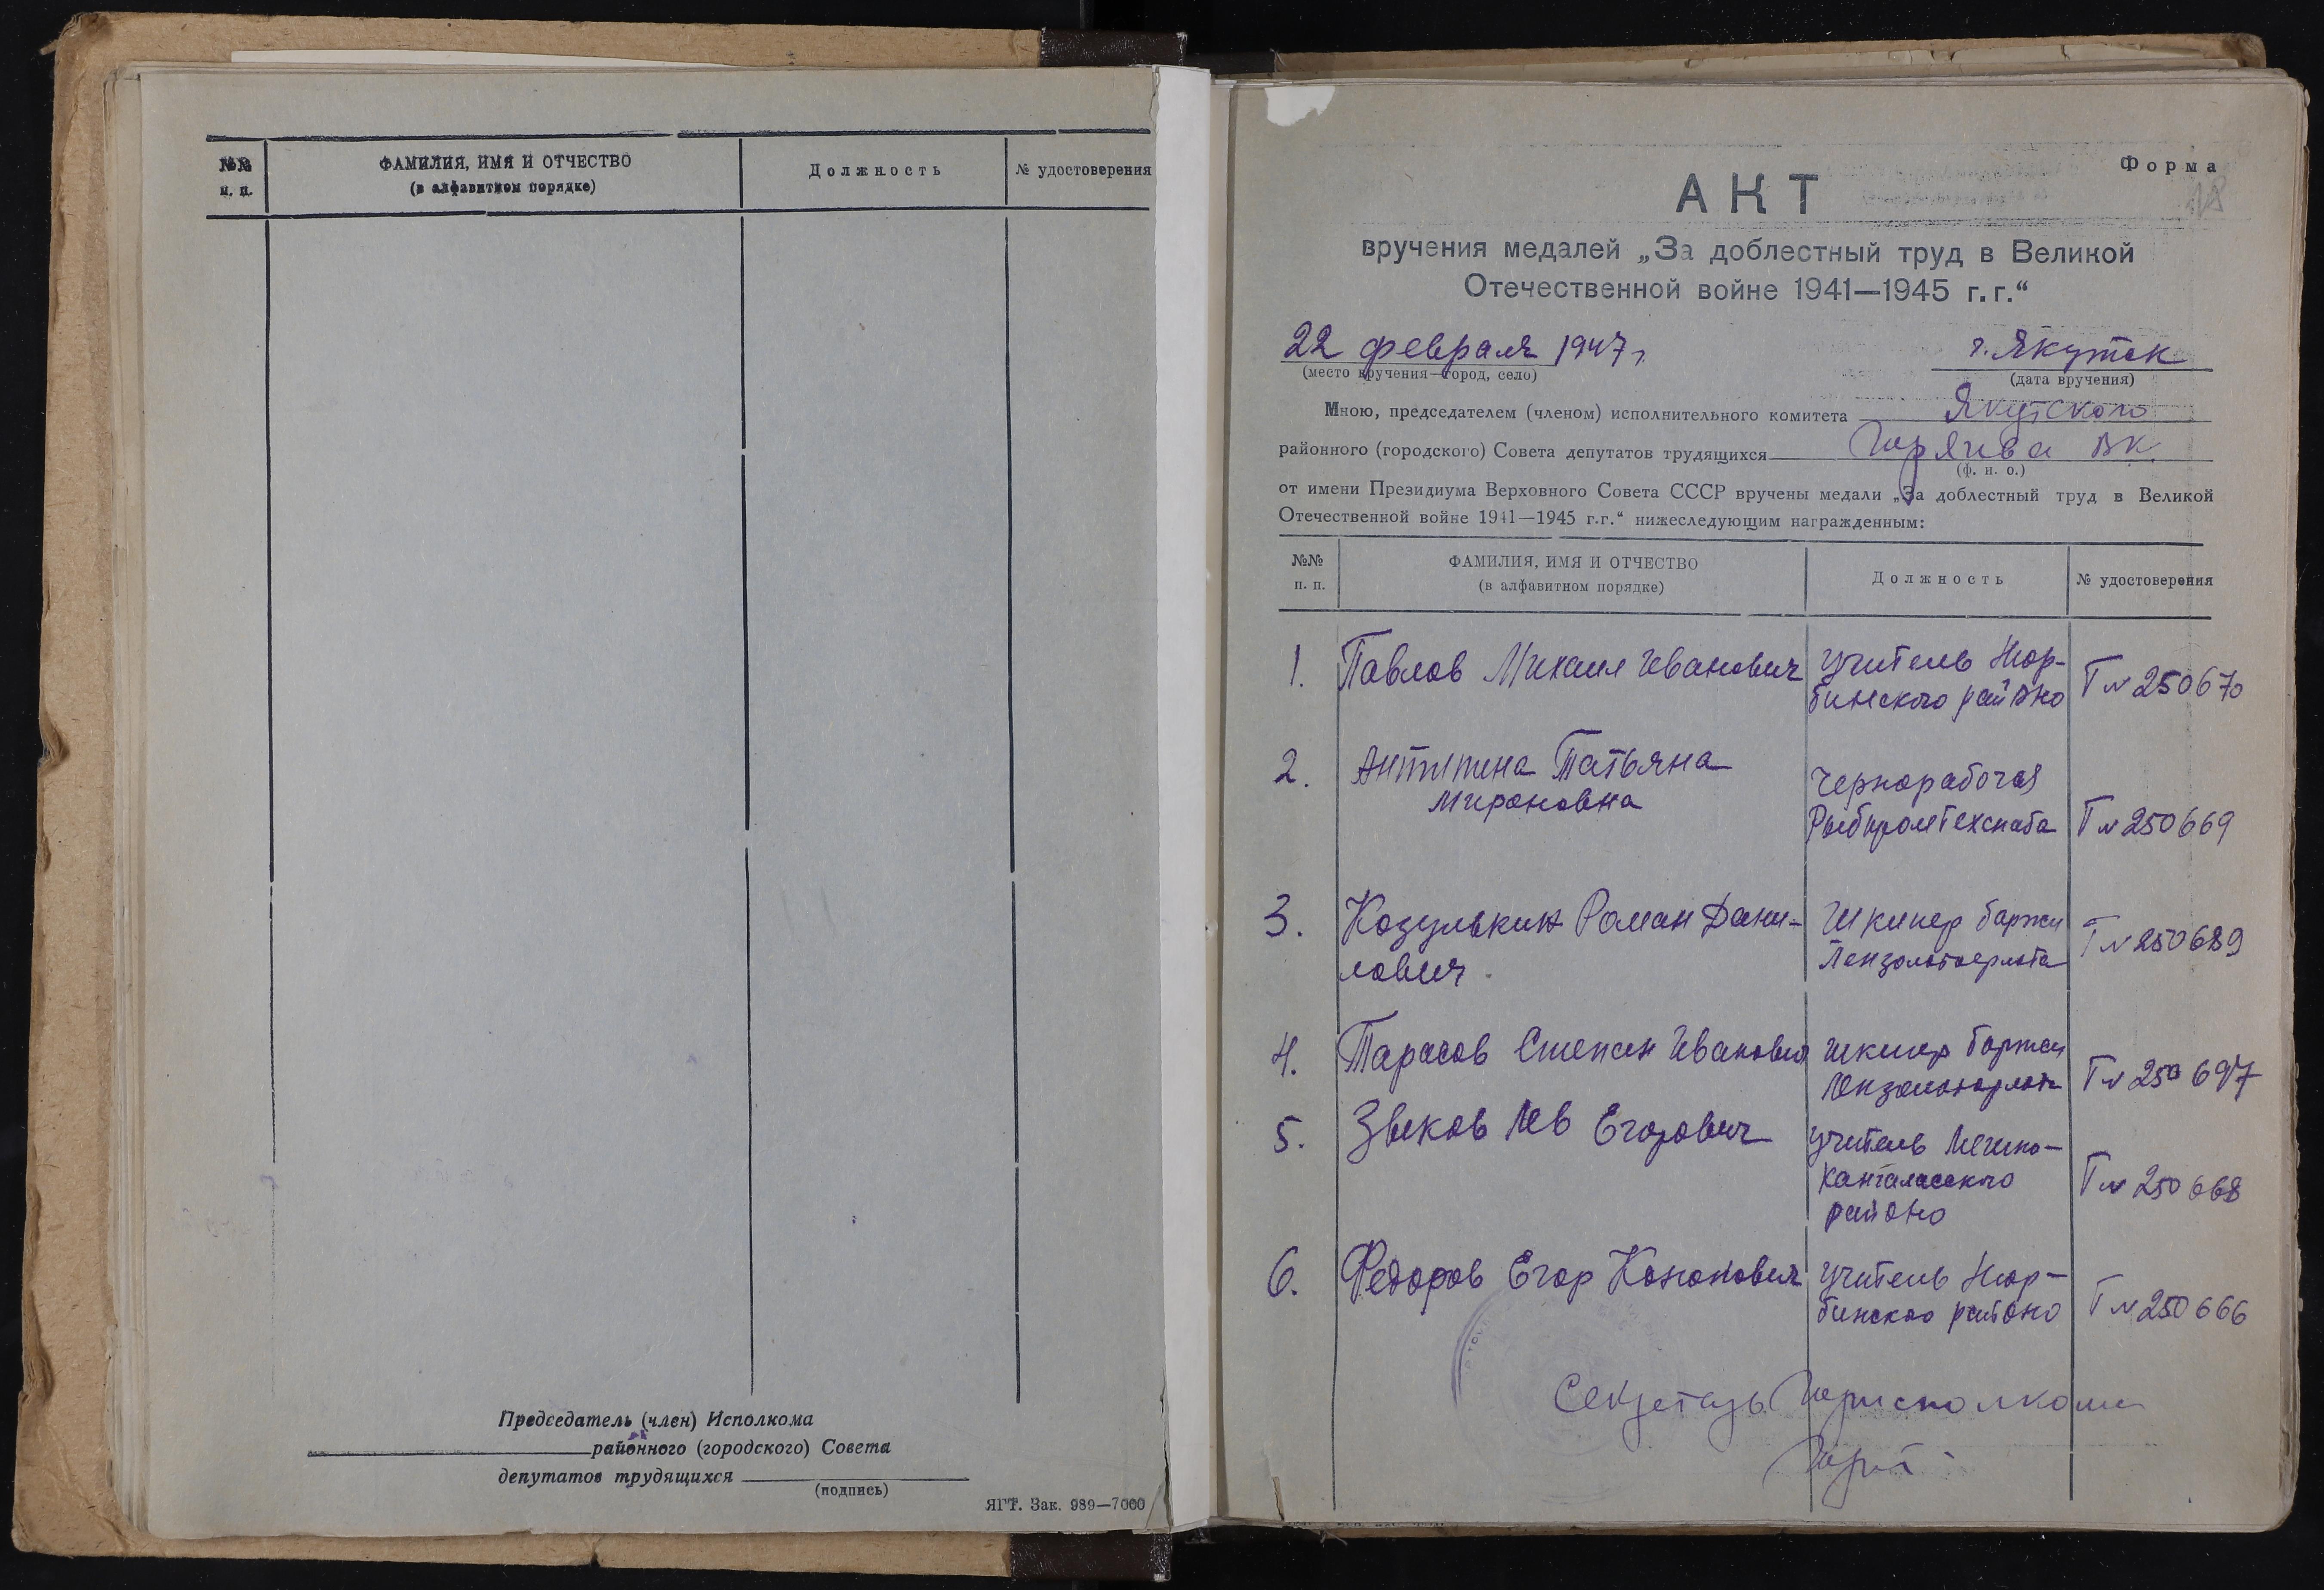 №№
п. п.
ФАМИЛИЯ, ИМЯ И ОТЧЕСТВО
(в алфавитном порядке)
Должность
№ удостоверения
Председатель (член) Исполкома
районного (городского) Совета
депутатов трудящихся
(подпись)
ЯГТ. Зак. 989—7000
Форма
18
АКТ
вручения медалей „За доблестный труд в Великой
Отечественной войне 1941—1945 г.г.“
22 февраля 1947 г. г. Якутск
(место вручения—город, село) (дата вручения)
Мною, председателем (членом) исполнительного комитета Якутского
районного (городского) Совета депутатов трудящихся Горячева ВК
(ф. и. о.)
от имени Президиума Верховного Совета СССР вручены медали „За доблестный труд в Великой
Отечественной войне 1941—1945 г.г.“ нижеследующим награжденным:
№№
п. п.
ФАМИЛИЯ, ИМЯ И ОТЧЕСТВО
(в алфавитном порядке)
Должность
№ удостоверения
1. Павлов Михаил Иванович учитель Нюр-
бинского районо Т № 250670
2. Антипина Татьяна
Мироновна
Чернорабочая
Рыбпромтехснаба Т № 250669
3. Козулькин Роман Дани-
лович
Шкипер баржи
Лензолотофлота Т № 250689
4. Тарасов Степан Иванович шкипер баржи
Лензолотофлота Т № 250697
5. Зыков Лев Егорович учитель Мегино-
Кангаласского
районо Т № 250668
6. Федоров Егор Кононович учитель Нюр-
бинского районо Т № 250666
Секретарь Горисполкома